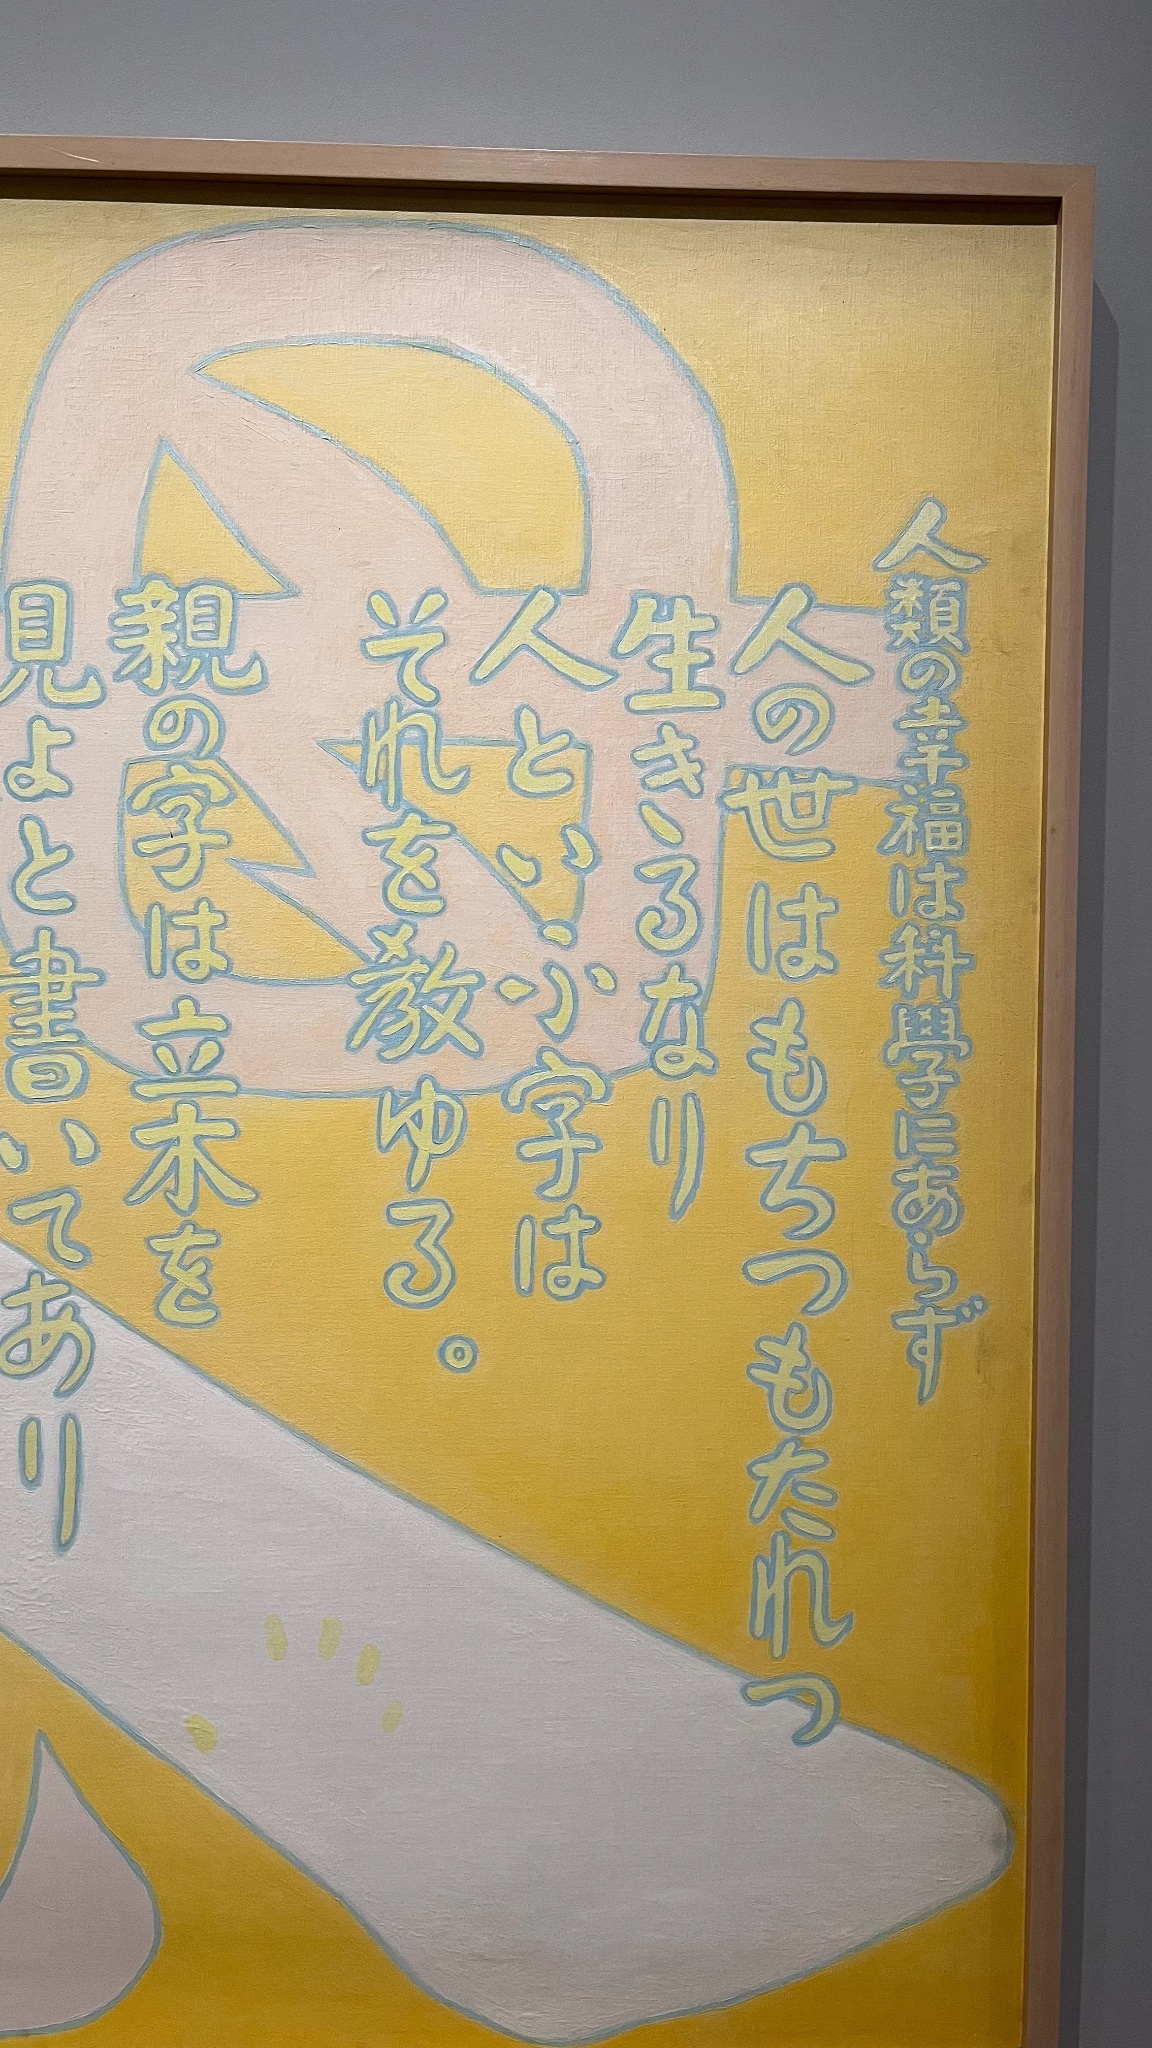 人類の幸福は科學にあらず
人の世はもちつもたれつ
生きるなり
人といふ字は
それを教ゆる。
親の字は立木を
見よと書いてあり